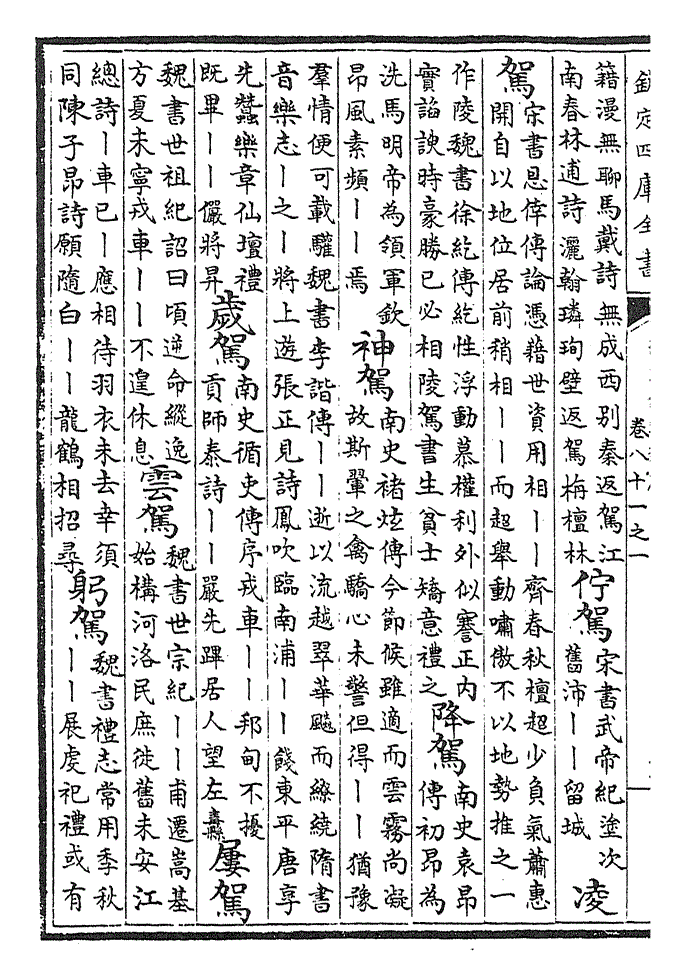 欽定四庫全書
卷八十一之一
籍漫無聊馬戴詩無成西别秦返駕江
南春林逋詩灑翰璘珣壁返駕栴檀林
佇駕
宋書武帝紀塗次
舊沛丨丨留城
凌
駕
宋書恩倖傳論憑藉世資用相丨丨齊春秋檀超少負氣蕭惠
開自以地位居前稍相丨丨而超舉動嘯傲不以地勢推之一
作陵魏書徐紇傳紇性浮動慕權利外似謇正内
實諂諛時豪勝已必相陵駕書生貧士矯意禮之
降駕
南史袁昂
傳初昂為
洗馬明帝為領軍欽
昂風素頻丨丨焉
神駕
南史褚炫傳今節候雖適而雲霧尚凝
故斯翬之禽驕心未警但得丨丨猶豫
羣情便可載驩魏書李諧傳丨丨逝以流越翠華飈而繚繞隋書
音樂志丨之丨將上遊張正見詩鳳吹臨南浦丨丨餞東平唐享
先蠶樂章仙壇禮
既畢丨丨儼將昇
歲駕
南史循史傳序戎車丨丨邦甸不擾
貢師泰詩丨丨嚴先蹕居人望左纛
屢駕
魏書世祖紀詔曰頃逆命縱逸
方夏未寧戎車丨丨不遑休息
雲駕
魏書世宗紀丨丨甫遷嵩基
始構河洛民庶徙舊未安江
總詩丨車已丨應相待羽衣未去幸須
同陳子昂詩願隨白丨丨龍鶴相招尋
躬駕
魏書禮志常用季秋
丨丨展虔祀禮或有